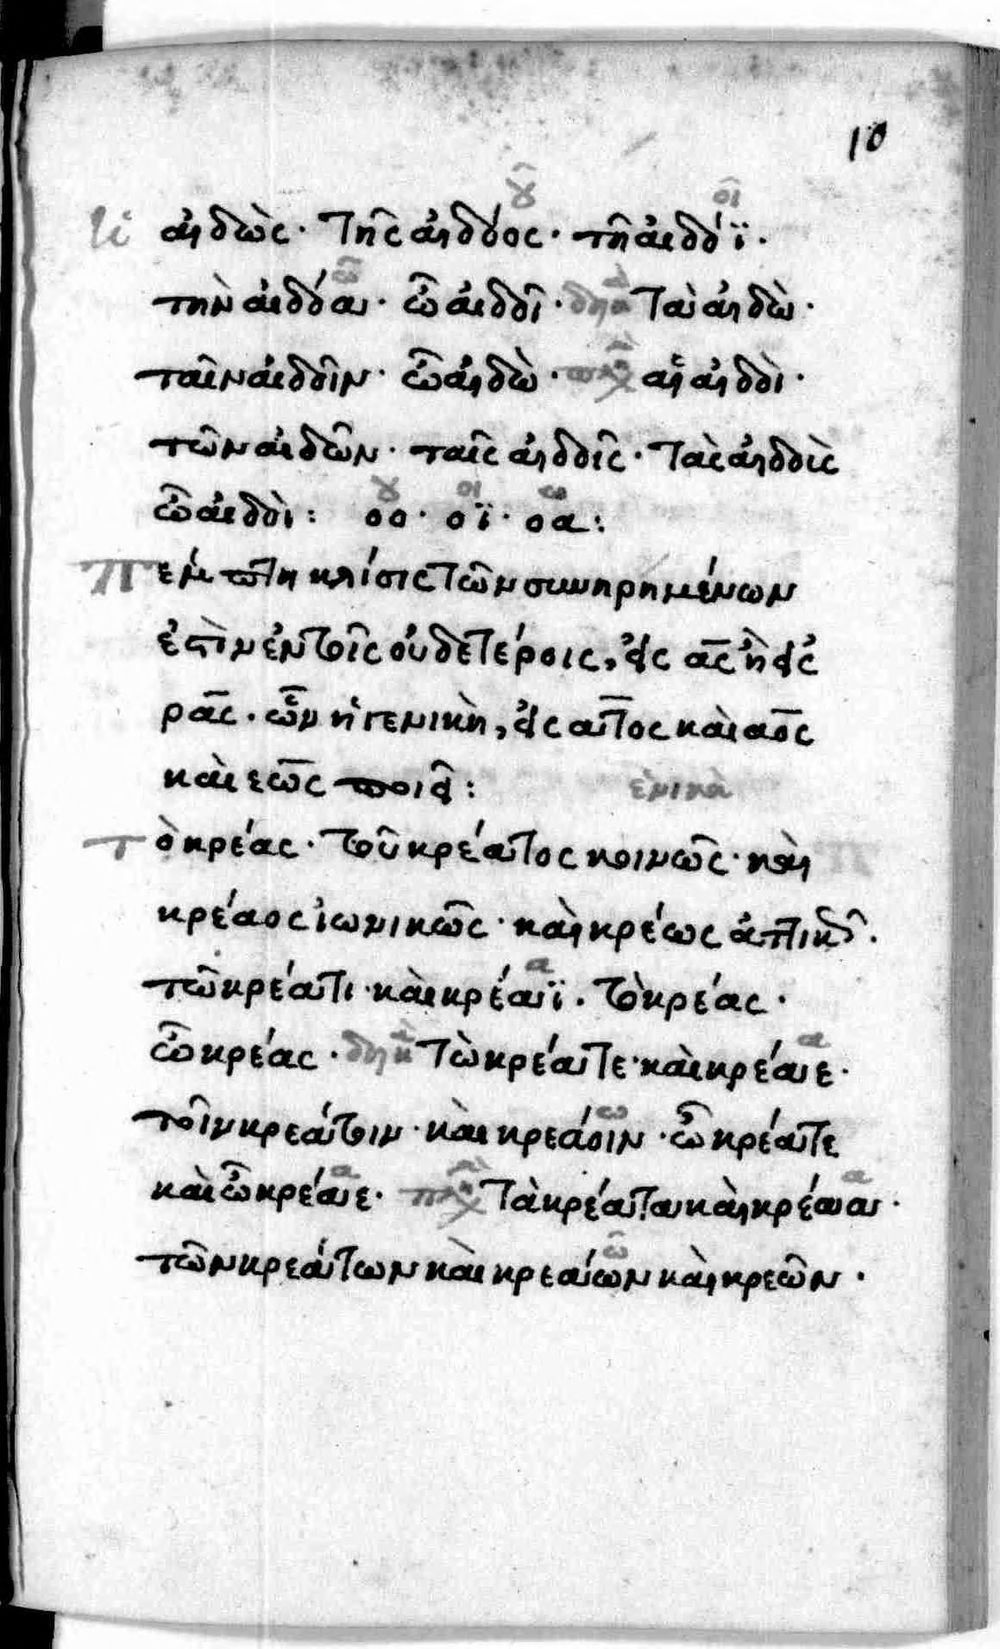 10
ἡ αἰδὼς· τῆς αἰδόος· τῇ αἰδόϊ·
τὴν αἰδόα· ὦ αἰδοῖ· δυϊκὰ τὰ αἰδὼ·
ταῖν αἰδοῖν· ὦ αἰδὼ· πλη αἱ αἰδοὶ·
τῶν αἰδῶν· ταῖς αἰδοῖς· τὰς αἰδοὺς
ὦ αἰδοὶ: οο· οϊ· οα:
Πέμπτη κλίσις τῶν συνηρημένων
ἐστὶν ἐν τοῖς οὐδετέροις, εἰς ας ἢ εἰς
ρας· ὧν ἡ γενικὴ, εἰς ατος καὶ αος
καὶ εως ποιεῖ: ἑνικὰ
Τὸ κρέας· τοῦ κρέατος κοινῶς· καὶ
κρέαος ἰωνικῶς· καὶ κρέως ἀττικῶς.
τῶ κρέατι· καὶ κρέαϊ. τὸ κρέας·
ὦ κρέας· δυϊκὰ τὼ κρέατε· καὶ κρέαε·
τοῖν κρεάτοιν· καὶ κρεάοιν· ὦ κρέατε
καὶ ὦ κρέαε· πλη τὰ κρέατα καὶ κρέαα·
τῶν κρεάτων καὶ κρεάων καὶ κρεῶν·